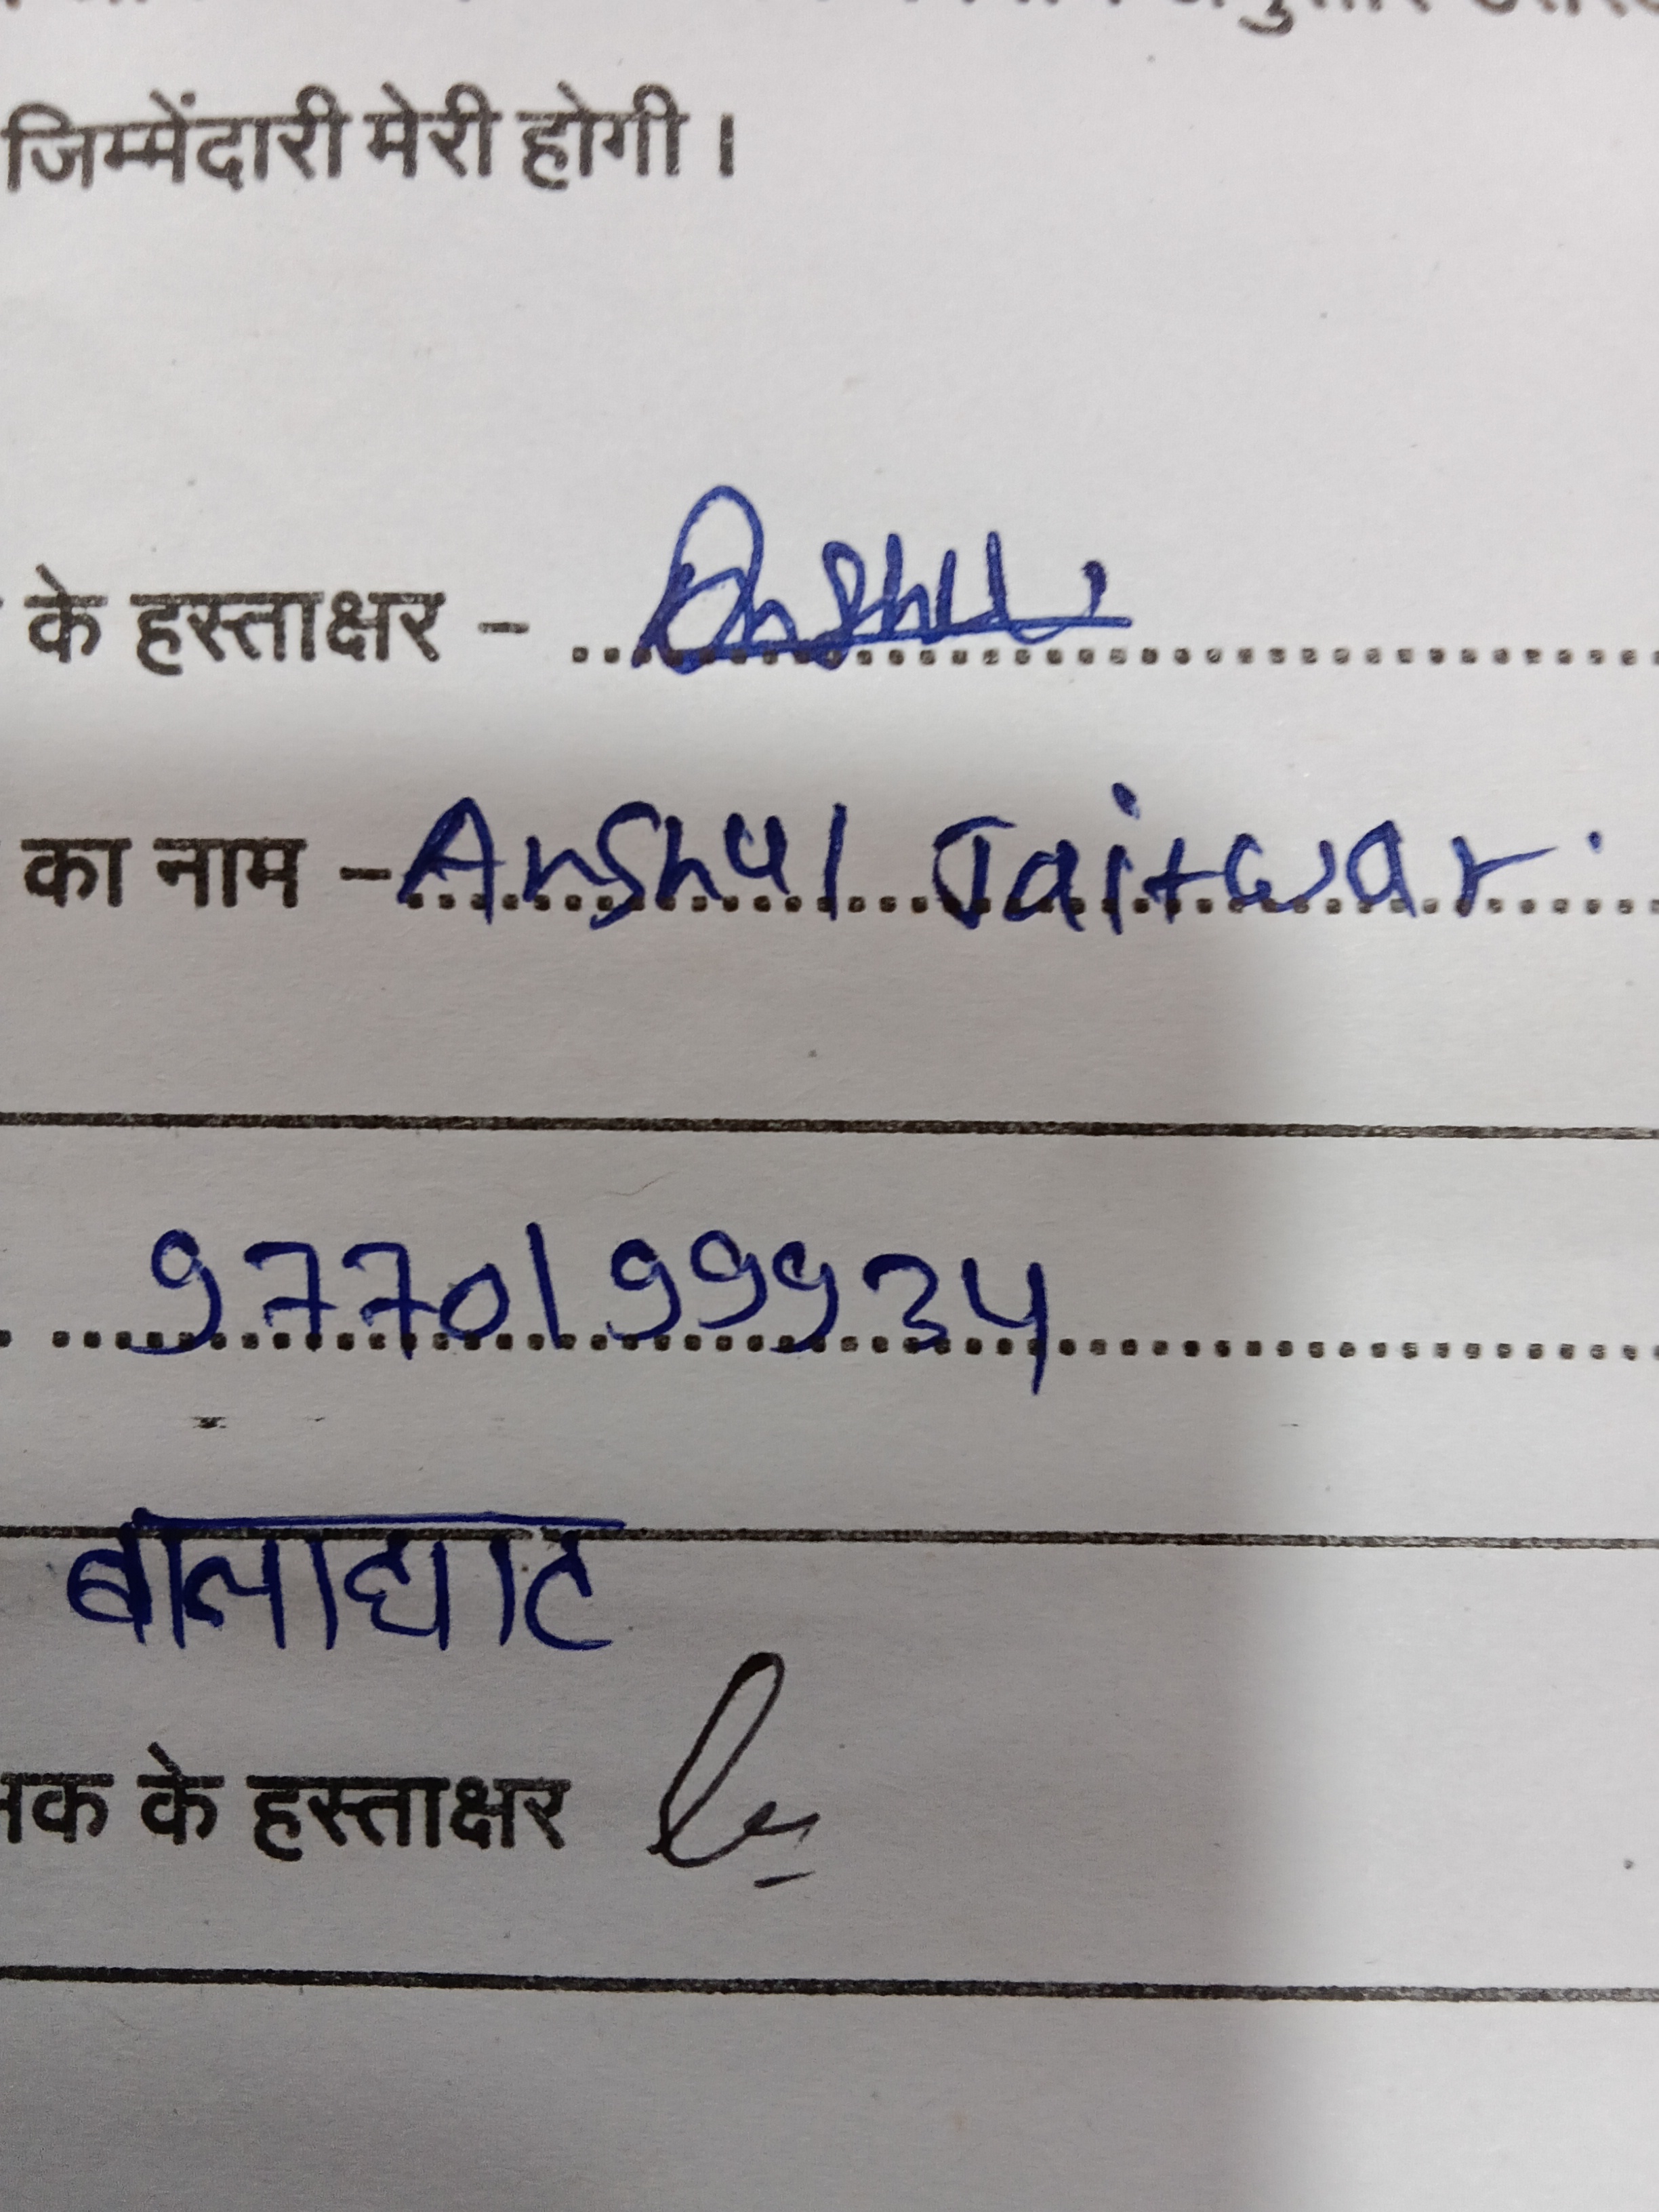 जिम्मेंदारी मेरी होगी ।
के हस्ताक्षर – Anshul
का नाम – Anshul Jaitwar
9770199934
बालाघाट
के हस्ताक्षर